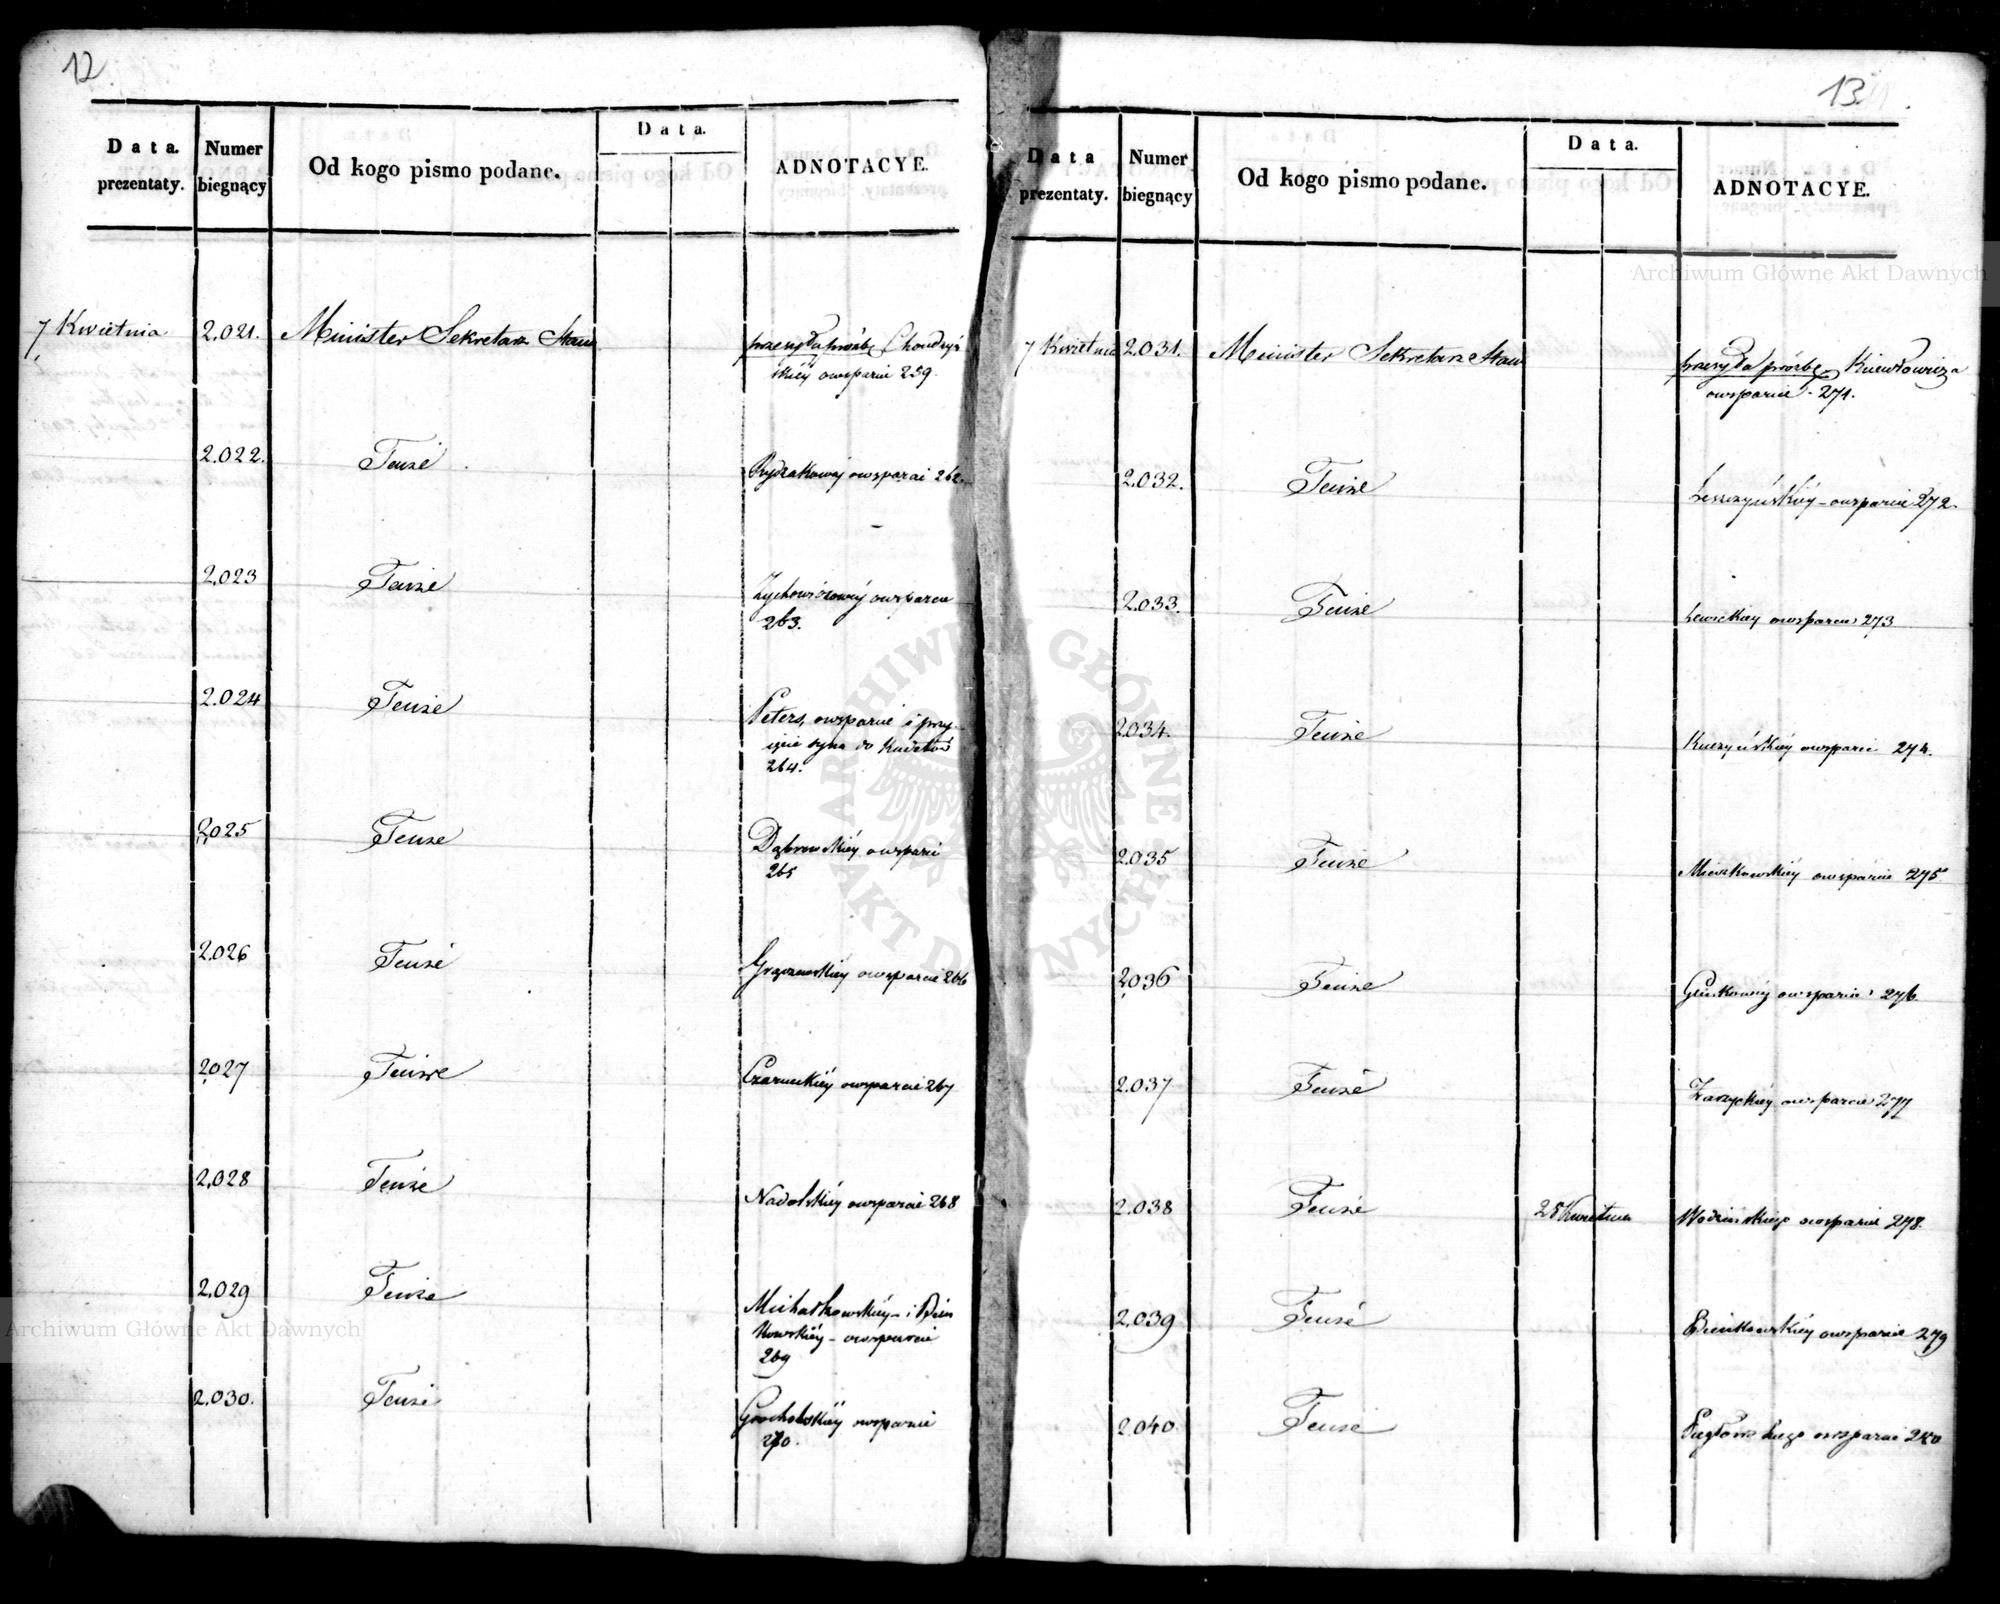 12
Data. prezentaty.
Numer biegnący
Od kogo pismo podane.
Data.
ADNOTACYE.
7 Kwietnia 2,021. Minister Sekretarz Stanu przesyła prośbę
skiéy owsparcie 259.
2,022. Tenże owsparcie 262.
2,023 Tenże owsparcie
263.
2,024 Tenże Peters, owsparcie i przy-
ięcie syna do Kadetów
264.
2,025 Tenże Dąbrowskiéy owsparcie
265
2,026 Tenże owsparcie 266
2,027 Tenże Czarneckiéy owsparcie 267
2,028 Tenże Nadolskiéy owsparcie 268
2,029 Tenże Michałkowskiéy i Bień
kowskiéy owsparcie
269
2,030. Tenże Grocholskiéy owsparcie
270.
13
Data prezentaty.
Numer biegnący
Od kogo pismo podane.
Data.
ADNOTACYE.
7 Kwietnia 2,031. Minister Sekretarz Stanu przesyła prośbę
owsparcie - 271.
2,032. Tenże Leszczyńskiéy - owsparcie 272.
2,033. Tenże Lewickiey owsparcie 273
2,034. Tenże Kuczyńskiéy owsparcie 274.
2,035 Tenże owsparcie 275.
2,036 Tenże Glinkowéy owsparcie 276.
2,037 Tenże Zarzyckiéy owsparcie 277
2,038 Tenże 28 Kwietnia Wodzinskiego owsparcie 278.
2,039 Tenże Bieńkowskiéy owsparcie 279
2,040. Tenże owsparcie 280
Archiwum Główne Akt Dawnych
Archiwum Główne Akt Dawnych
ARCHIWUM GŁÓWNE AKT DAWNYCH